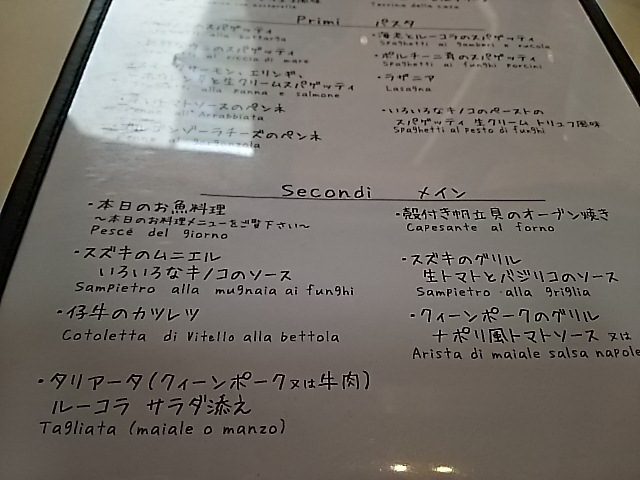 Primi パスタ
スパゲッティ
のスパゲッティ
al riccio di mare
モン、エリンギ、
と生クリームスパゲッティ
alla panna e salmone
トソースのペンネ
Arrabbiata
ゾーラチーズのペンネ
・海老とルーコラのスパゲッティ
Spaghetti ai gamberi e rucola
・ポルチーニ茸のスパゲッティ
Spaghetti ai funghi Porcini
・ラザニア
Lasagna
・いろいろなキノコのペーストの
スパゲッティ 生クリーム トリュフ風味
Spaghetti al pesto di funghi
Secondi メイン
・本日のお魚料理
〜本日のお料理メニューをご覧下さい〜
Pesce del giorno
・スズキのムニエル
いろいろなキノコのソース
Sampietro alla mugnaia ai funghi
・仔牛のカツレツ
Cotoletta di Vitello alla bettola
・タリアータ(クィーンポーク又は牛肉)
ルーコラ サラダ添え
Tagliata (maiale o manzo)
・殻付き帆立貝のオーブン焼き
Capesante al forno
・スズキのグリル
生トマトとバジリコのソース
Sampietro alla griglia
・クィーンポークのグリル
ナポリ風トマトソース 又は
Arista di maiale salsa napole